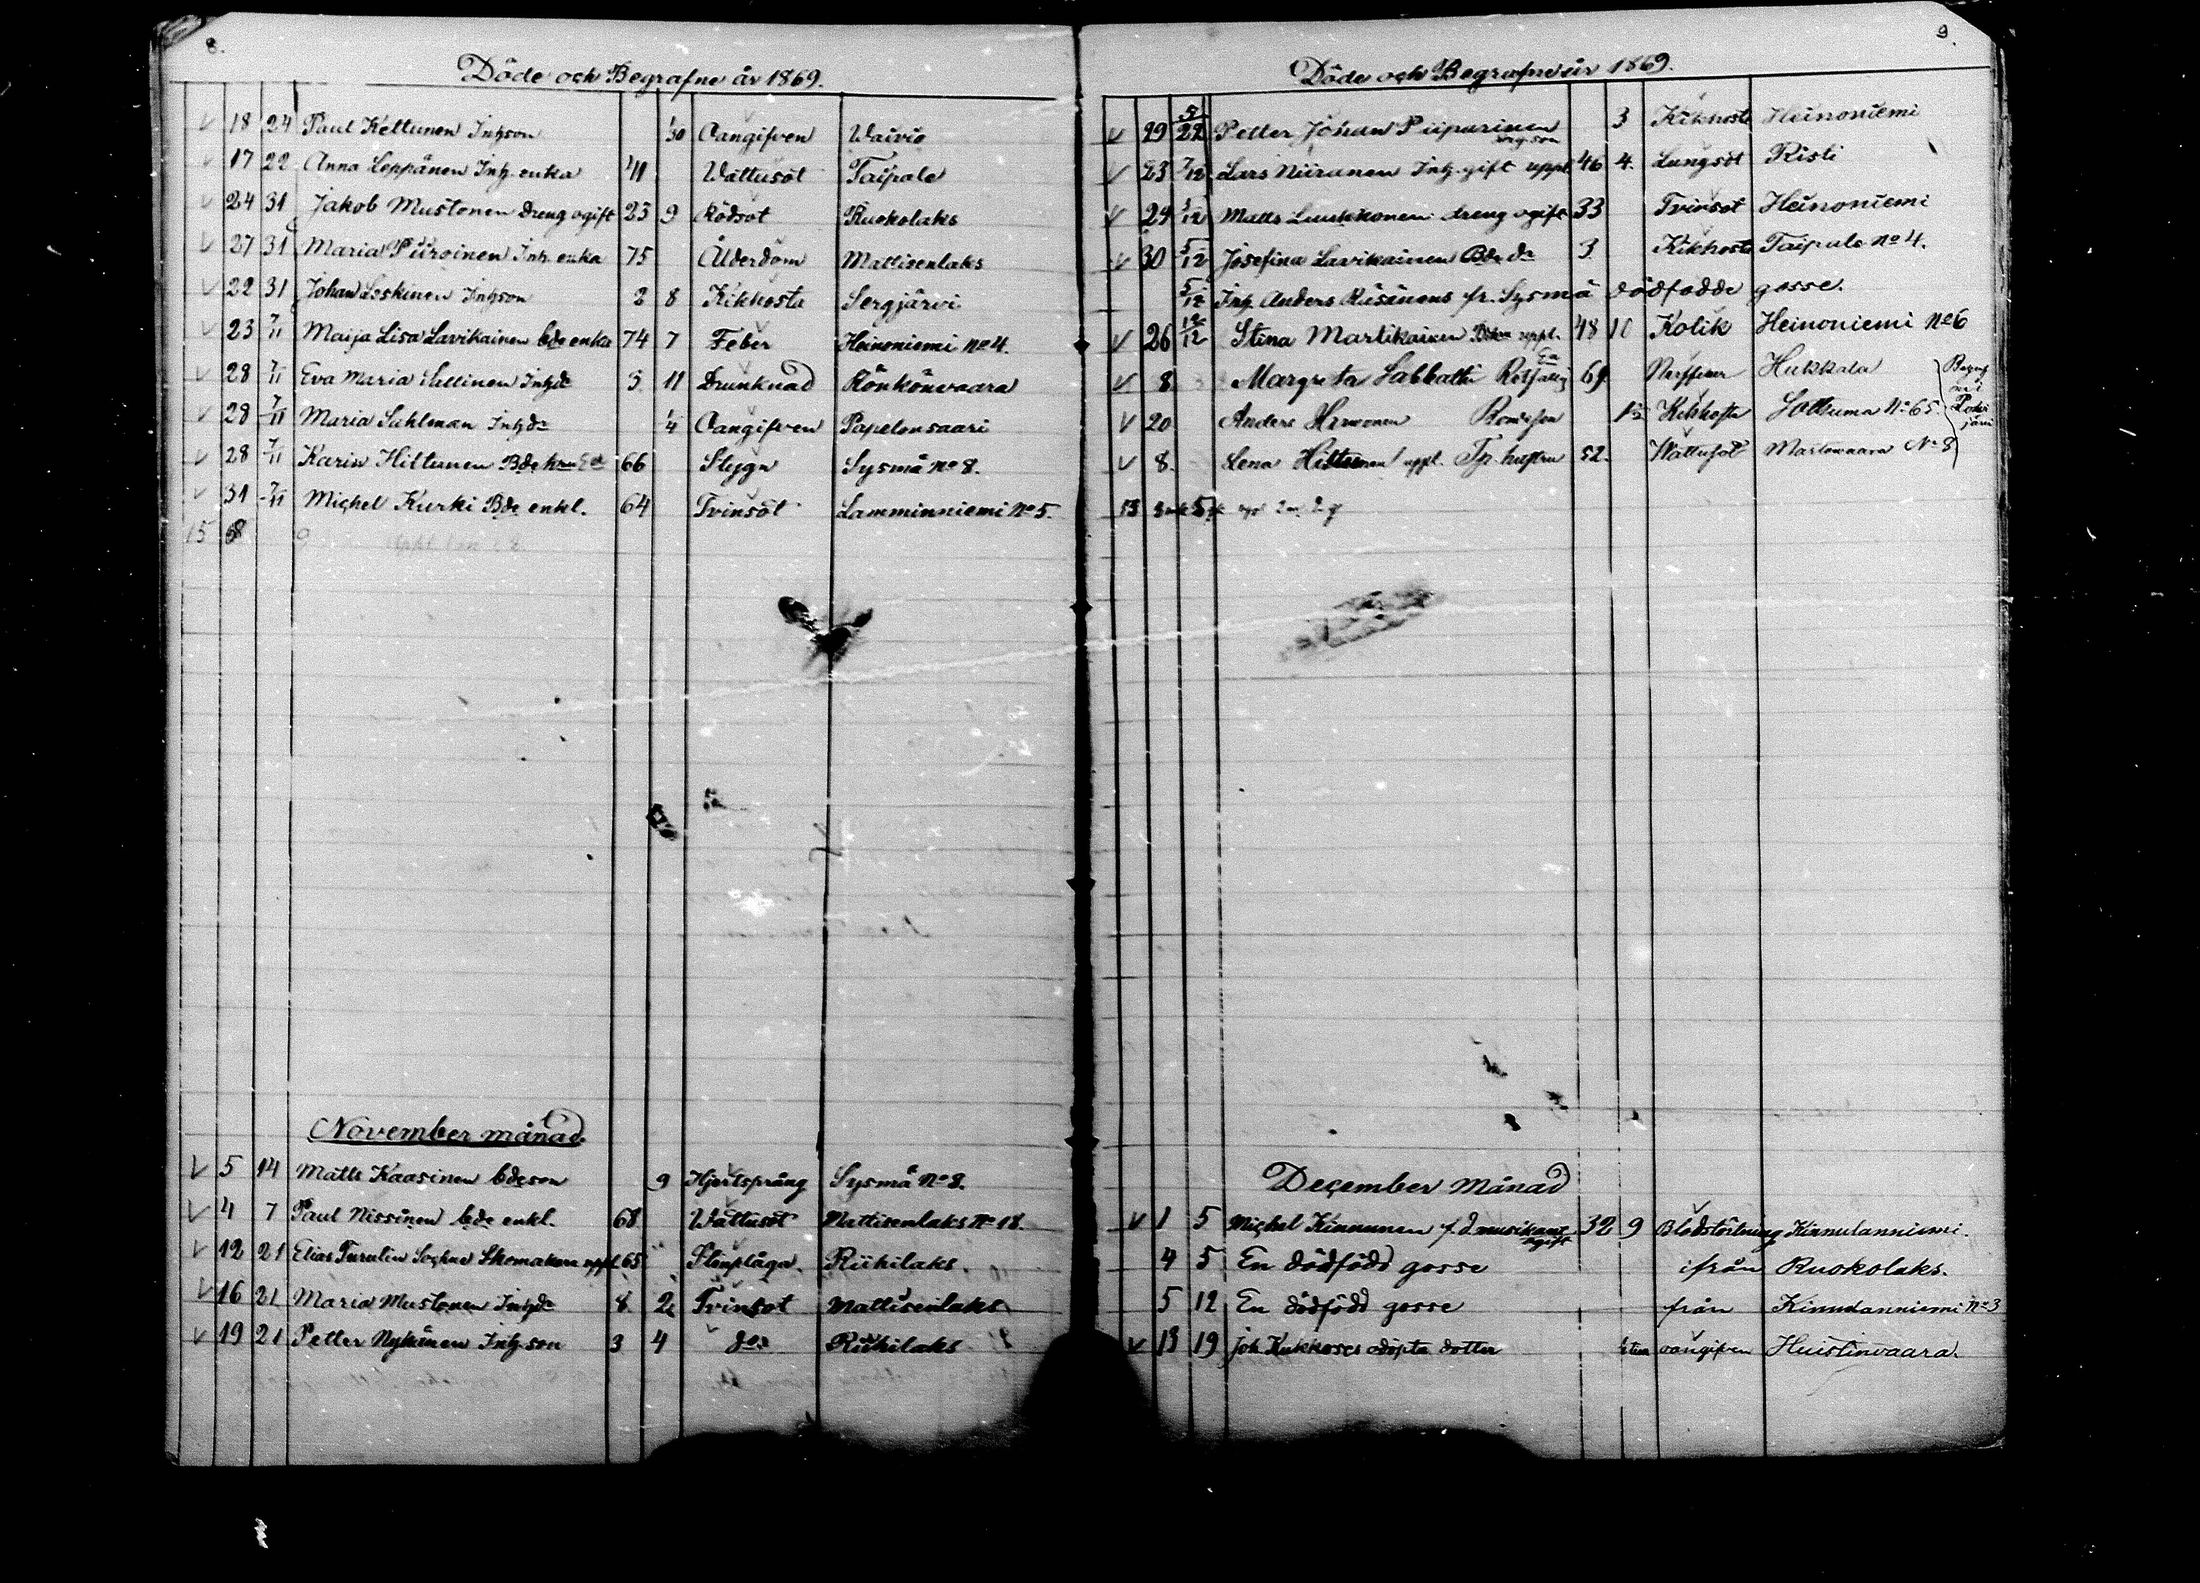 8.
Döde och Begrafne år 1869.
18 24 Paul Keltunen Inhson 1/30 Oangifven Waivio
17 22 Anna Leppänen Inh. enka 41 Wattusot Taipale
24 31 Jakob Mustonen dreng ogift 23 9 Rödsot Ruokolaks
27 31 Maria Piiroinen Inh. enka 75 Ålderdom Mattisenlaks
22 31 Johan Leskinen Inhson 2 8 Kikhosta Sergjärvi
23 7/11 Maija Lisa Lavikainen bde enka 74 7 Feber Heinoniemi No 4.
28 7/11 Eva Maria Inhdr 3 11 Drunknad Rönkönvaara
28 7/11 Maria Sahlman Inhdr 1/4 Oangifven Papelonsaari
28 7/11 Karin Hiltunen Bde 66 Stygn Sysmä No 8.
31 7/11 Michel Kurki Bde enkl. 64 Tvinsot Lamminniemi No 5.
15
November månad
5 14 Matts Kaasinen bdeson 9 Hjertsprång Sysmä No 8.
4 7 Paul Nissinen bde enkl. 68 Wattusot Mattisenlaks No 18.
12 21 Elias Turulin Sockne Skomakare uppl 65 Stenplåga Riihilaks
16 21 Maria Mustonen Inhdr 8 2 Tvinsot Mattisenlaks
19 21 Petter Nykänen Inhson 3 4 do Riihilaks
9.
Döde och Begrafne år 1869.
29 5/22 Petter Johan Piipurinen 3 Kikhosta Heinoniemi
23 7/12 Lars Niiranen Inh. gift uppl 46 4. Lungsot Risti
29 5/12 Matts Luukkonen dreng ogift 33 Tvinsot Heinoniemi
30 5/12 Josefina Lavikainen Bde dr 3 Kikhosta Taipale No 4.
5/12 Inh. Anders Räsänens fr. Sysmä dödfödde gosse.
26 12/12 Stina Martikainen uppl. 48 11 Kolik Heinoniemi No 6
8 Margreta Sabbath 69 Hukkala
20 Anders Bondeson Kikhosta No 65
8. Lena Hiltunen uppl. hustru 52. Wattusot Martonvaara No 8
13
December Månad
1 5 Michel Kinnunen f.d musikant ogift 32 9 Blodstörtning Kinnulanniemi.
4 5 En dödfödd gosse ifrån Ruokolaks.
5 12 En dödfödd gosse från Kinnulanniemi No 3
13 19 Joh Kukkoses adopta dotter oangifven Huistinvaara.